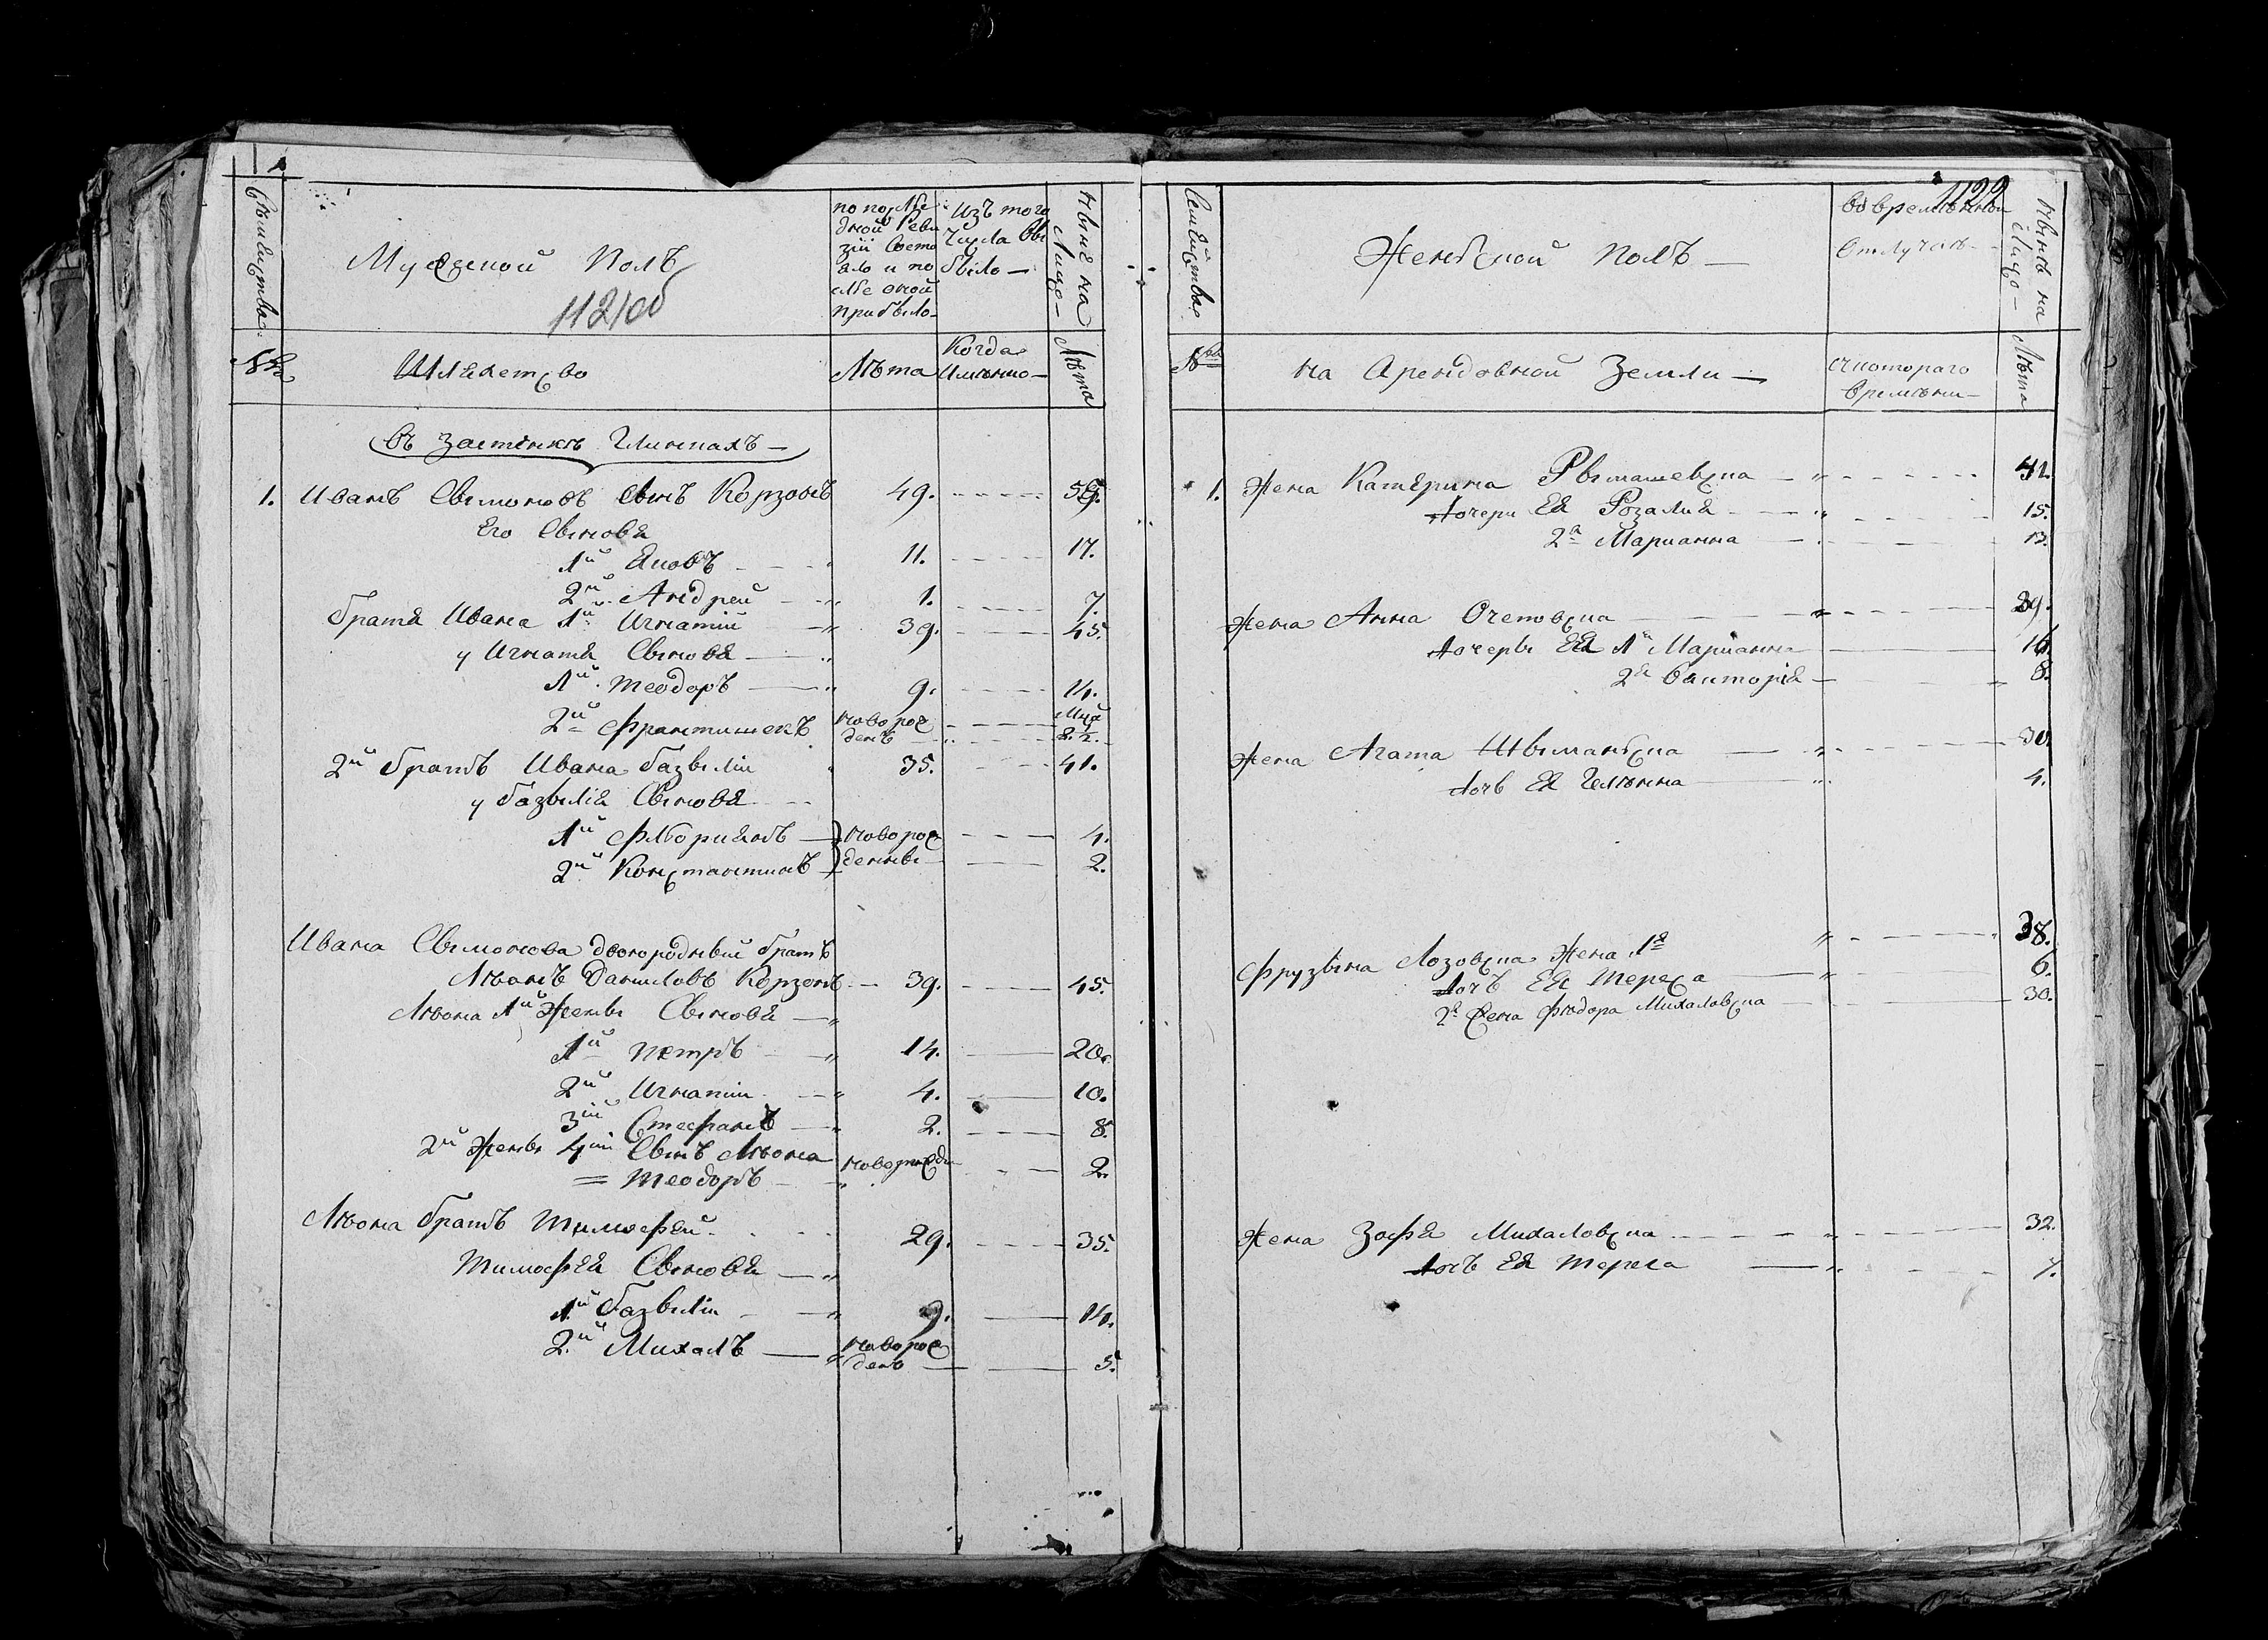 Семейства
Мужеской Полъ
по послѣ
дной Реви
зіи Состо
яло и по
слѣ оной
прибыло
Изъ того
Числа Вы
было —
Нынѣ на
Лицо —
1121 об
№
Шляхетство
Лѣта
Когда
Имянно —
Лѣта
въ Застѣнкѣ Глинкахъ —
1. Иванъ Сымоновъ Сынъ Корзонъ 49. 55.
Его Сыновя
1й Яковъ 11. 17.
2й Андрей 1. 7.
Братя Ивана 1й Игнатій 39. 45.
у Игнатя Сыновя —
1й Теодоръ 9. 14.
2й Францишекъ новорож
денъ
2й братъ Ивана Базылій 35. 41.
у Базылія Сыновя
1й Флоріянъ — новорож 4.
2й Константинъ денны — 2.
Ивана Сымонова двоюродный братъ
Лѣонъ Даниловъ Корзонъ — 39. 45.
Лѣона 1й Жены Сыновя —
1й Петръ 14. 20.
2й Игнатій 4. 10.
3ій Стефанъ 2. 8.
2й Жены 4ій Сынъ Лѣона новорожде
= Теодоръ — 2.
Лѣона братъ Тимофей 29. 35.
Тимофея Сыновя —
1й Базылій 9. 14.
2й Михалъ — новорож
денъ — 5.
Семейства
Женской Полъ —
во временной
Отлучкѣ
Нынѣ на
Лицо —
1122
№
на Арендовной Земли —
съ котораго
времѣни —
Лѣта
1. Жена Катерина Рымашевска 41.
Дочери Ея Розалия 15.
2я Марианна — 13.
Жена Анна 39.
Дочеры Ея 1я Марианна 16.
2я Викторія — 8.
Жена Агата Шыманска 30.
Дочь Ея Гелѣна 4.
Фрузына Лозовска Жена 1я 38.
Дочь Ея Тереса 6.
2я Жена Фѣдора Михаловска 30.
Жена Зофя Михаловска 32.
Дочь Ея Тереса 7.